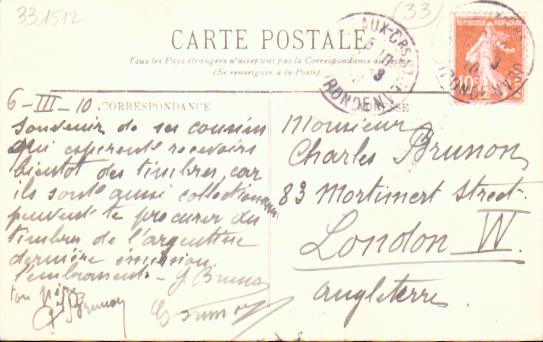 331512
(33)
CARTE POSTALE
Tous les Pays étrangers n'acceptent pas la Correspondance au Recto
(Se renseigner à la Poste).
6-III-10.
CORRESPONDANCE
souvenir de ses cousins
qui espèrent recevoirs
bientôt des timbres, car
ils sont aussi collectionneurs
peuvent te procurer du
timbres de l'argentine
dernière emission
G. Brunon
ton
Brunon
Monsieur
Charles Brunon
83 Mortimert Street.
London W.
Angleterre
10c